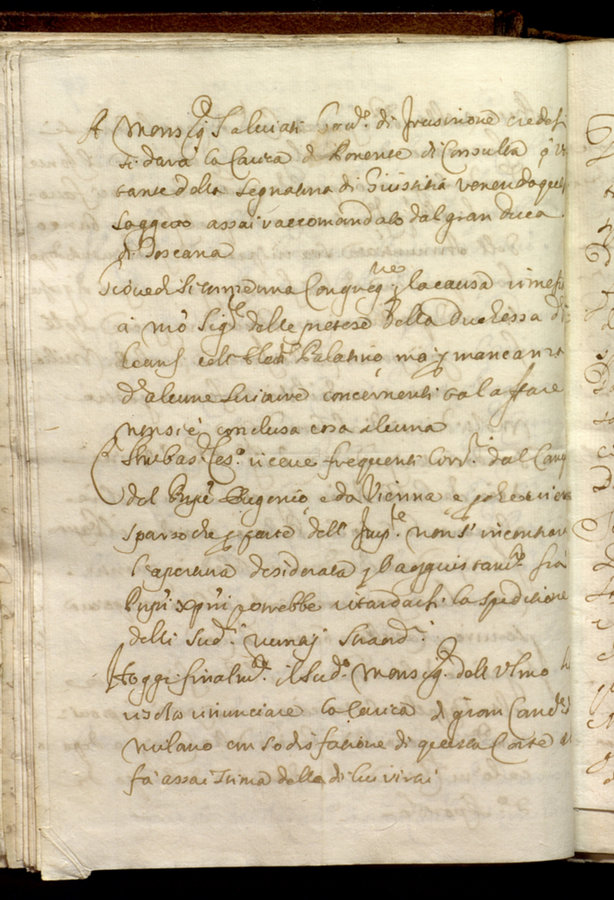 A Mons.r Salviati Gov.re di Frusinone credesi
si darà la Carica di Ponente di Consulta ò Vo
tante della Segnatura di Giustitia venendo quel
Soggetto assai raccomandato dal gran Duca
di Toscana
Giovedi si tenne una Congreg.ne p la causa rimessa
à N'ro Sig.re delle pretese della Duchessa d'
coll'Elett.e Palatino, ma p mancanza
d'alcune scritture concernenti tal affare
non si è conclusa cosa alcuna
Ces.o riceve frequenti Corr.i dal Campo
del Prnpe Eugenio, e da Vienna e
sparso che p parte dell' Imp.re non s'incontrare
l'apertura desiderata p l'aggiustam.to frà
Prnpi xpni potrebbe ritardarsi la speditione
delli Sud.i
Hoggi finalm.te il Sud.o Mons.r dell'Olmo hà
risoluto rinunciare la Carica di gran Canc.re di
Milano con sodisfatione di questa Corte che
fà assai stima della di lui virtù